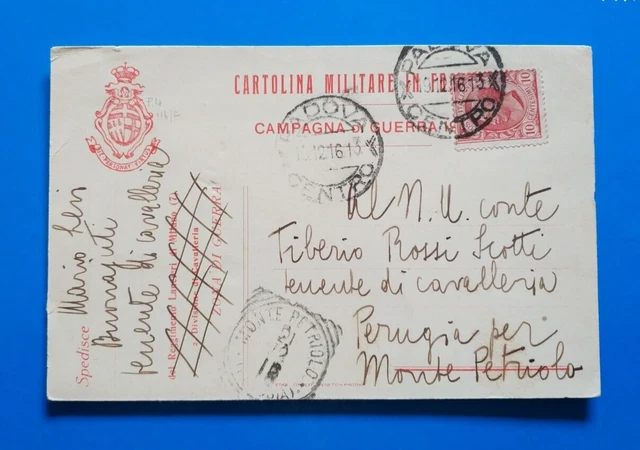 CARTOLINA MILITARE IN FR
CAMPAGNA DI GUERRA
PADOVA
19.12.16.13
CENTRO
PADOVA
12.16.13
CENTRO
10
10
Al N. U. conte
Tiberio Rossi Scotti
tenente di cavalleria
Perugia per
Monte Petriolo
Spedisce
Mario
Buonajuti
tenente di cavalleria
del Reggimento Lancieri di Milano (7)
a Divisione di Cavalleria
ZONA DI GUERRA
MONTE PETRIOLO